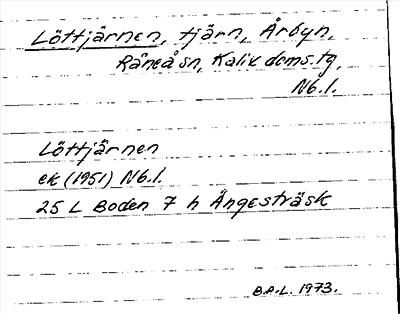 Löttjärnen, tjärn, Årbyn,
Råneå sn, Kalix doms.tg,
Nb.l.
Löttjärnen
ek (1951) Nb.l.
25 L Boden 7 h Ängesträsk
B.A.-L. 1973.